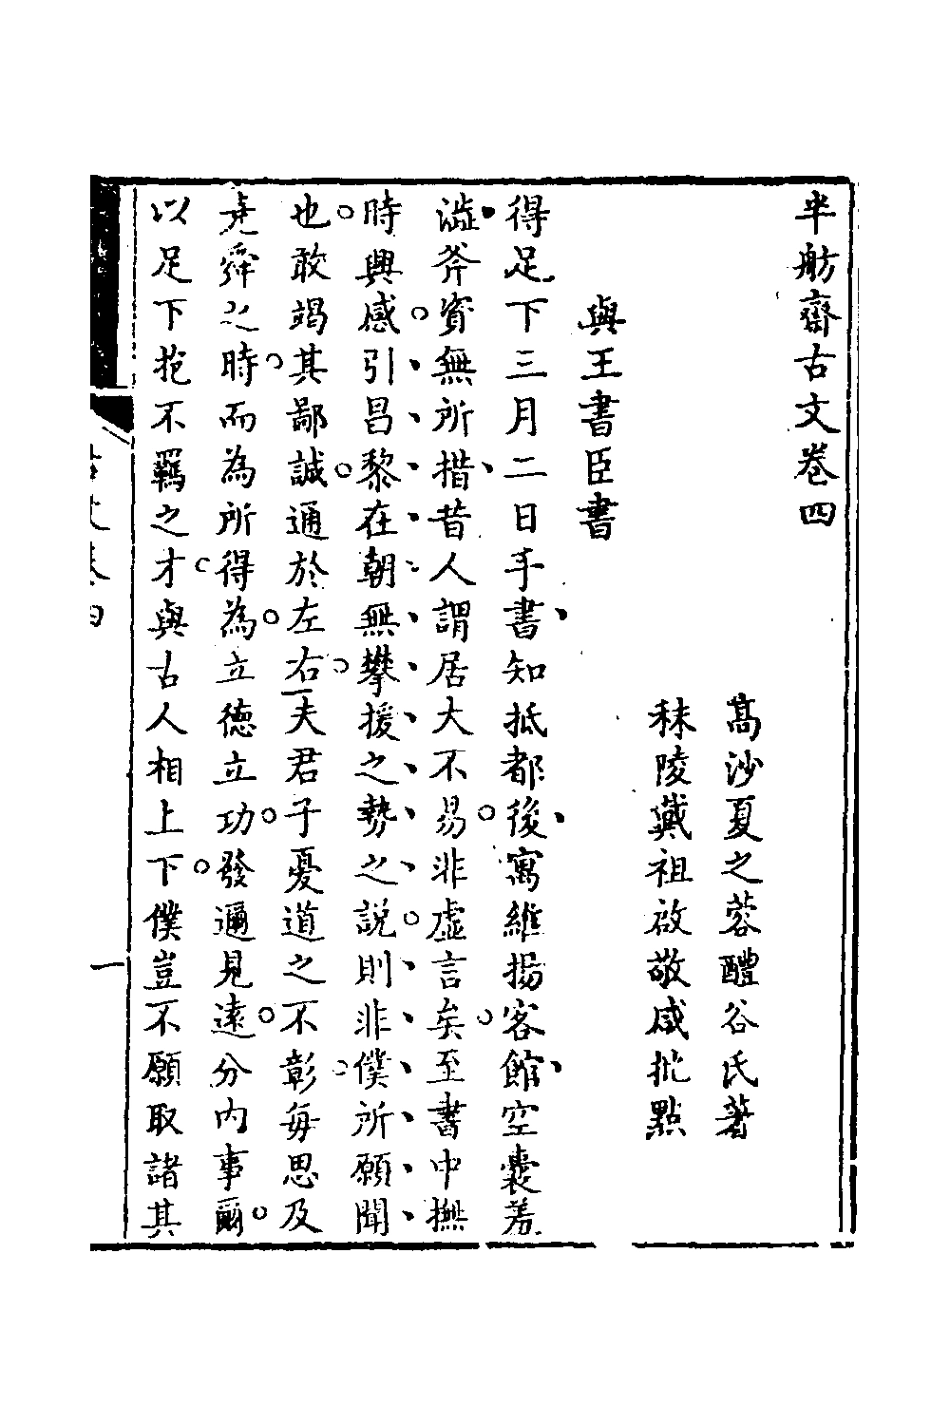 半舫齋古文卷四
高沙夏之蓉醴谷氏著
秣陵戴祖啟敬咸批點
與王書臣書
得足下三月二日手書知抵都後寓維揚客館空囊羞
澁斧資無所措昔人謂居大不易非虛言矣至書中撫
時興感引昌黎在朝無攀援之勢之說則非僕所願聞
也敢竭其鄙誠通於左右夫君子憂道之不彰每思及
堯舜之時而為所得為立德立功發邇見遠分內事爾
以足下抱不羈之才與古人相上下僕豈不願取諸其
古文卷四
一